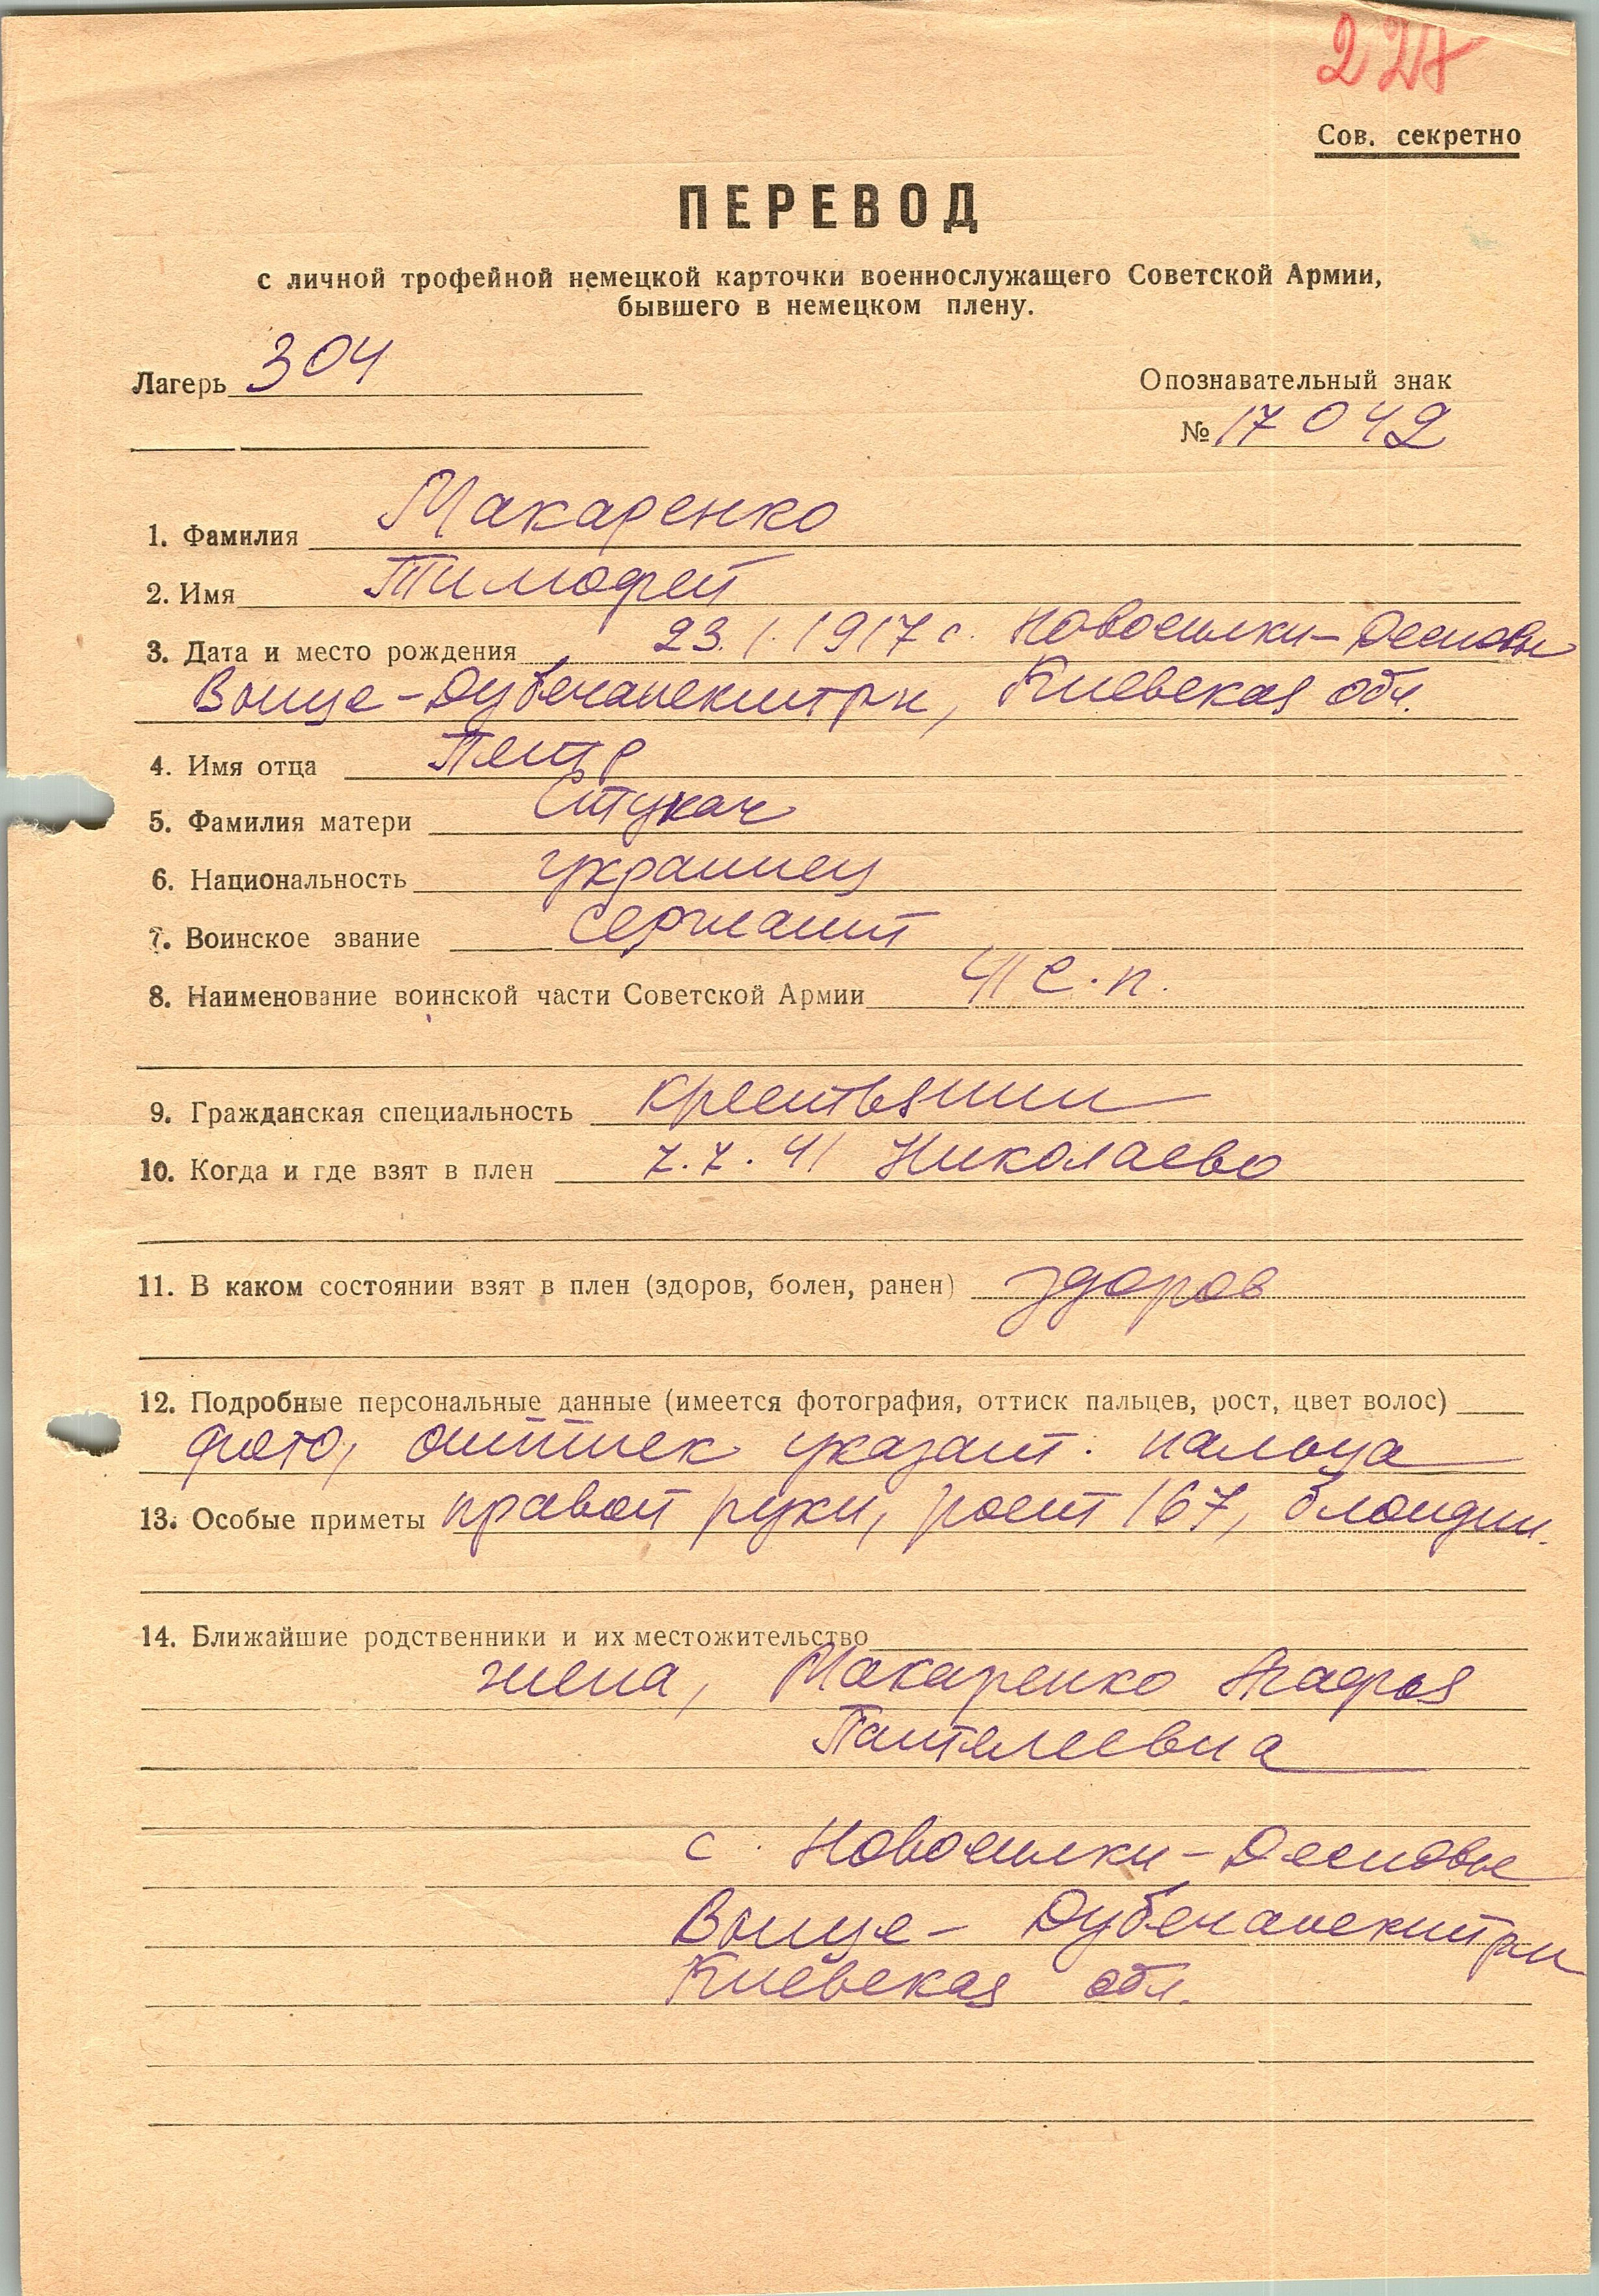 227
Сов. секретно
ПЕРЕВОД
с личной трофейной немецкой карточки военнослужащего Советской Армии,
бывшего в немецком плену.
Лагерь 304
Опознавательный знак
№ 17042
1. Фамилия Макаренко
2. Имя Тимофей
3. Дата и место рождения 23.1.1917 с. Новосилки-Десновы
Выще-Дубечанскитрн, Киевская обл.
4. Имя отца Петр
5. Фамилия матери Стукач
6. Национальность украинец
7. Воинское звание сержант
8. Наименование воинской части Советской Армии 41 с.п.
9. Гражданская специальность крестьянин
10. Когда и где взят в плен 7.7.41 Николаево
11. В каком состоянии взят в плен (здоров, болен, ранен) здоров
12. Подробные персональные данные (имеется фотография, оттиск пальцев, рост, цвет волос)
фото, оттиск указат. пальца
13. Особые приметы правой руки, рост 167, блондин.
14. Ближайшие родственники и их местожительство
жена, Макаренко
Пантелеевна
с. Новосилки-Десновые
Выще-Дубечанскитрн
Киевская обл.